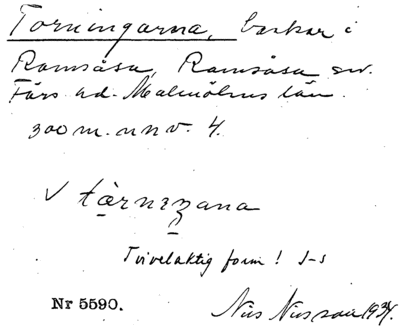 Torningarna, backar i
Ramsåsa, Ramsåsa sn.
Färs hd. Malmöhus län.
300 m. nnv. 4.
√ tàrnıŋana
Tvivelaktig form! J-s
Nr 5590.
Nils Nilsson 1934.